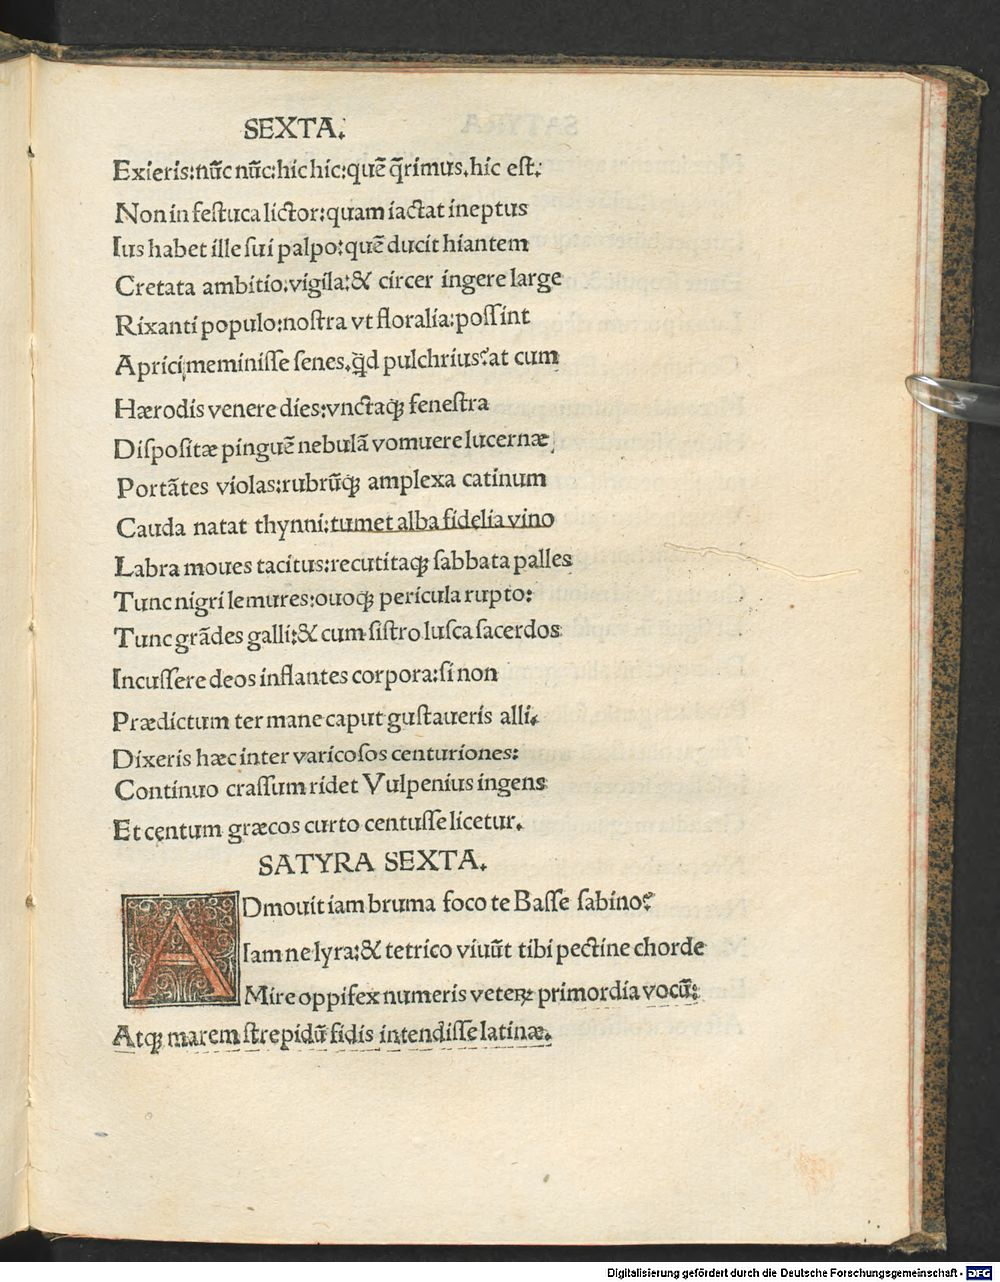 SEXTA.
Exieris:nūc nūc:hic hic:quē q̄rimus.hic est:
Non in festuca lictor:quam iactat ineptus
Ius habet ille sui palpo:quē ducit hiantem
Cretata ambitio:vigila:& circer ingere large
Rixanti populo:nostra vt floralia:possint
Aprici meminisse senes.qd pulchrius?at cum
Hærodis venere dies:vnctaqꝫ fenestra
Dispositæ pinguē nebulā vomuere lucernæ
Portātes violas:rubrūqꝫ amplexa catinum
Cauda natat thynni:tumet alba fidelia vino
Labra moues tacitus:recutitaqꝫ sabbata palles
Tunc nigri lemures:ouoqꝫ pericula rupto:
Tunc grādes galli:& cum sistro lusca sacerdos
Incussere deos inflantes corpora:si non
Prædictum ter mane caput gustaueris alli.
Dixeris hæc inter varicosos centuriones:
Continuo crassum ridet Vulpenius ingens
Et centum græcos curto centusse licetur.
SATYRA SEXTA.
ADmouit iam bruma foco te Basse sabino?
Iam ne lyra:& tetrico viuūt tibi pectine chorde
Mire oppifex numeris veterꝝ primordia vocū:
Atqꝫ marem strepidū fidis intendisse latinæ.
Digitalisierung gefördert durch die Deutsche Forschungsgemeinschaft - DFG